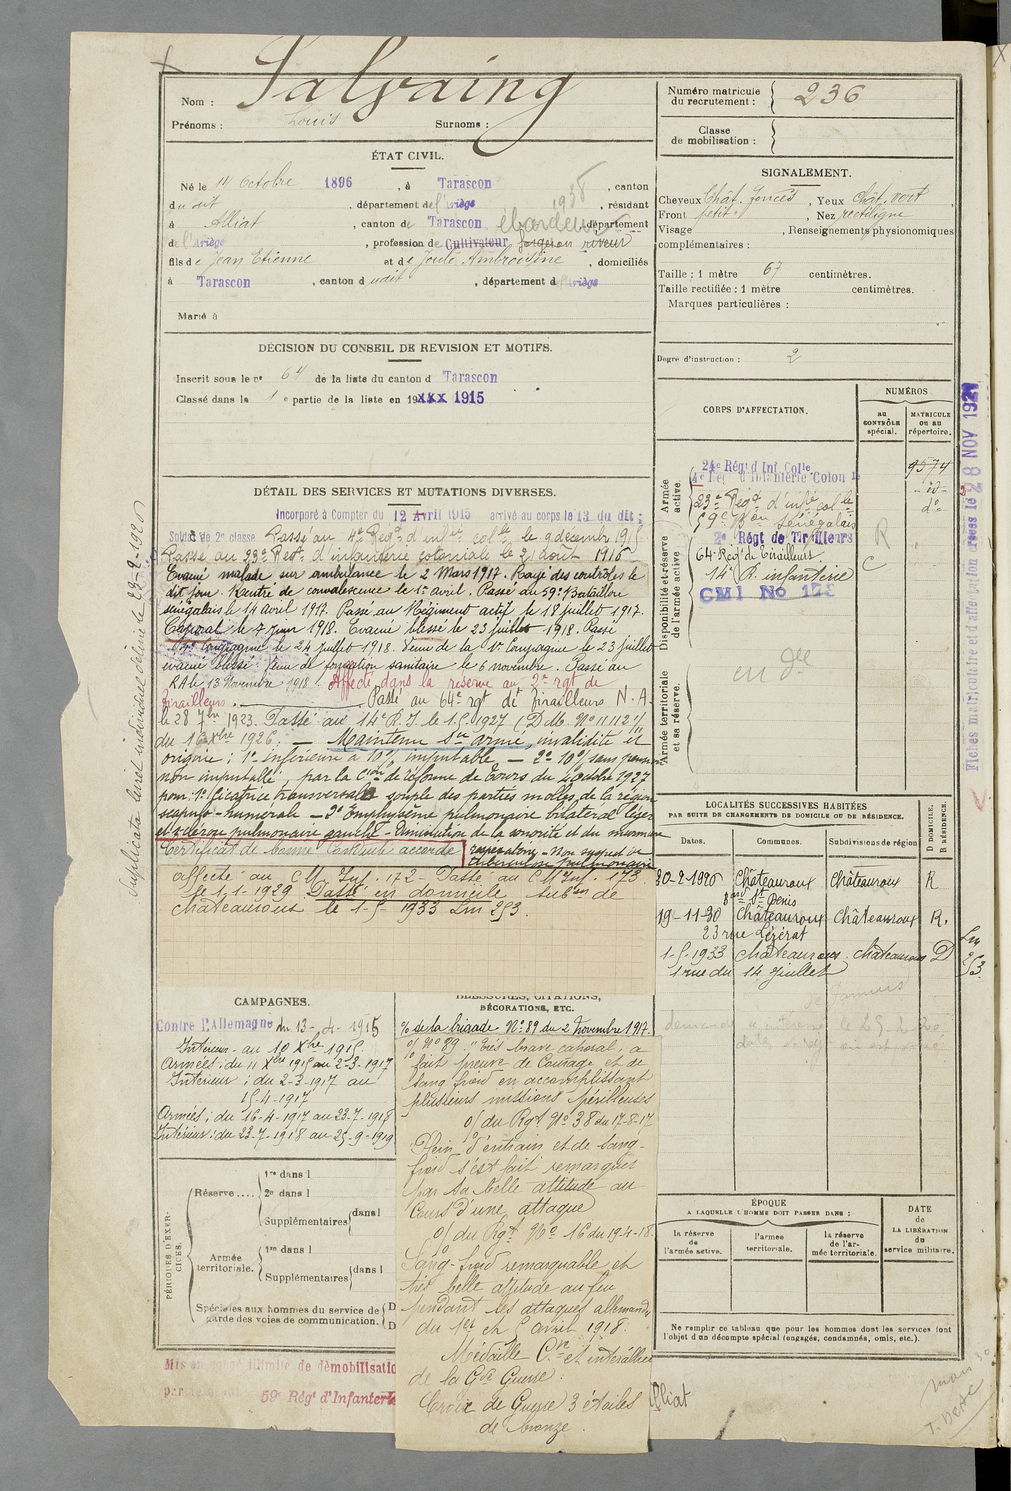 Nom : Salvaing
Prénoms : Louis Surnoms :
ÉTAT CIVIL.
Né le 14 Octobre 1896, à Tarascon, canton
dudit, département de l'Ariège, résidant
à Alliat, canton de Tarascon, département
de l'Ariège, profession de Cultivateur forgeron riveur
1938
fils de Jean Etienne et de Joulé Ambroisine, domiciliés
à Tarascon, canton dudit, département d'Ariège
Marié à
DÉCISION DU CONSEIL DE REVISION ET MOTIFS.
Inscrit sous le n° 64 de la liste du canton d Tarascon
Classé dans la 1e partie de la liste en 19XXX 1915
DÉTAIL DES SERVICES ET MUTATIONS DIVERSES.
Incorporé à Compter du 12 Avril 1915 arrivé au corps le 13 du dit ;
Soldat de 2e classe Passé au 4e Régt d'infie colle le 9 décembre 1915
Passé au 23e Regt d'infanterie coloniale le 21 août 1916
Evacué malade sur ambulance le 2 Mars 1917. Rayé des contrôles le
dit jour. Rentré de convalescence le 1er avril. Passé du 59e Bataillon
sénégalais le 14 avril 1917. Passé au Régiment actif le 18 juillet 1917.
Caporal le 7 juin 1918. Evacué blessé le 23 juillet 1918. Passé
Compagnie le 24 juillet 1918. Venu de la 1e Compagnie le 23 juillet
évacué blessé. Venu de formation sanitaire le 6 novembre. Passé au
RA le 13 Novembre 1918. Affecté dans la réserve au 2e rgt de
tirailleurs. Passé au 64e rgt de Tirailleurs N.A.
le 28 7bre 1923. Passé au 14e R.I. le 1-5-1927 (D M. No 11112 1/1
du 16 Xbre 1926. — Maintenu Sce armé, invalidité et
origine : 1° inférieure à 10% imputable — 2° 10% sans pension
non imputable, par la Cion de réforme de Tours du 4 octobre 1927
pour : 1° Cicatrice transversale souple des parties molles de la région
scapulo-humérale — 2° Emphysème pulmonaire bilatéral léger
et sclérose pulmonaire gauche - Diminution de la sonorité et du murmure
Certificat de bonne Conduite accordé respiratoire - Non suspect de
tuberculose pulmonaire
affecté au C M Inf. 172 - Passé au C M Inf. 173
le 1-1-1929. Passé en domicile subon de
Châteauroux le 1-5-1933 Lm 253.
Duplicata livret individuel délivré le 28-2-1920
CAMPAGNES.
Contre L'Allemagne du 13-4-1915
Intérieur - au 10 Xbre 1915
Armées : du 11 Xbre 1915 au 2-3-1917
Intérieur : du 2-3-1917 au
15-4-1917
Armées : du 16-4-1917 au 23-7-1918
Intérieur : du 23-7-1918 au 25-9-1919
BLESSURES, CITATIONS,
DÉCORATIONS, ETC.
% de la brigade No 89 du 2 novembre 1917.
O/ No 89 "Très brave caporal ; a
fait preuve de Courage et de
Sang froid en accomplissant
plusieurs missions périlleuses
o/ du Rgt No 38 du 17-8-17
Plein d'entrain et de Sang-
froid s'est fait remarquer
par sa belle attitude au
Cours d'une attaque
o/ du Rgt No 16 du 19-4-18.
Sang-froid remarquable et
très belle attitude au feu
pendant les attaques allemandes
du 1er et 5 avril 1918.
Médaille Cve et interalliée
de la Gde Guerre.
Croix de Guerre 3 étoiles
de bronze.
PÉRIODES D'EXERCICES.
Réserve....
1re dans l
2e dans l
Supplémentaires dans l
Armée territoriale.
1re dans l
Supplémentaires dans l
Spéciales aux hommes du service de
garde des voies de communication.
D
D
Mis en congé illimité de démobilisation
59e Régt d'Infanterie
Alliat
Numéro matricule
du recrutement : 236
Classe
de mobilisation :
SIGNALEMENT.
Cheveux Chât. foncés, Yeux Chât. vert
Front petit, Nez rectiligne
Visage, Renseignements physionomiques
complémentaires :
Taille : 1 mètre 67 centimètres.
Taille rectifiée : 1 mètre centimètres.
Marques particulières :
Degré d'instruction : 2
CORPS D'AFFECTATION.
NUMÉROS
au CONTRÔLE spécial.
MATRICULE ou au répertoire.
Armée active.
24e Régt d'Inf Colle 9574
4e Régt d'Infanterie Colon le -id-
23e Regt d'infie colle do
59e Bon Sénégalais
Disponibilité et réserve de l'armée active.
2e Régt de Tirailleurs R
64 Regt de Tirailleurs
14e R. infanterie C
CMI No 173
Armée territoriale et sa réserve.
Fiches matriculaire et d'affectation créées le 28 NOV 1921
LOCALITÉS SUCCESSIVES HABITÉES
PAR SUITE DE CHANGEMENTS DE DOMICILE OU DE RÉSIDENCE.
D DOMICILE.
R RÉSIDENCE.
Dates. Communes. Subdivisions de région
20-2-1920 Châteauroux Châteauroux R
St Denis
19-11-30 Châteauroux Châteauroux R.
23 rue Lézérat
1-5-1933 Châteauroux Châteauroux D
1 rue du 14 Juillet
Lm
253
ÉPOQUE
A LAQUELLE L'HOMME DOIT PASSER DANS :
la réserve de l'armée active.
l'armée territoriale.
la réserve de l'armée territoriale.
DATE de LA LIBÉRATION du service militaire.
Ne remplir ce tableau que pour les hommes dont les services font
l'objet d'un décompte spécial (engagés, condamnés, omis, etc.).